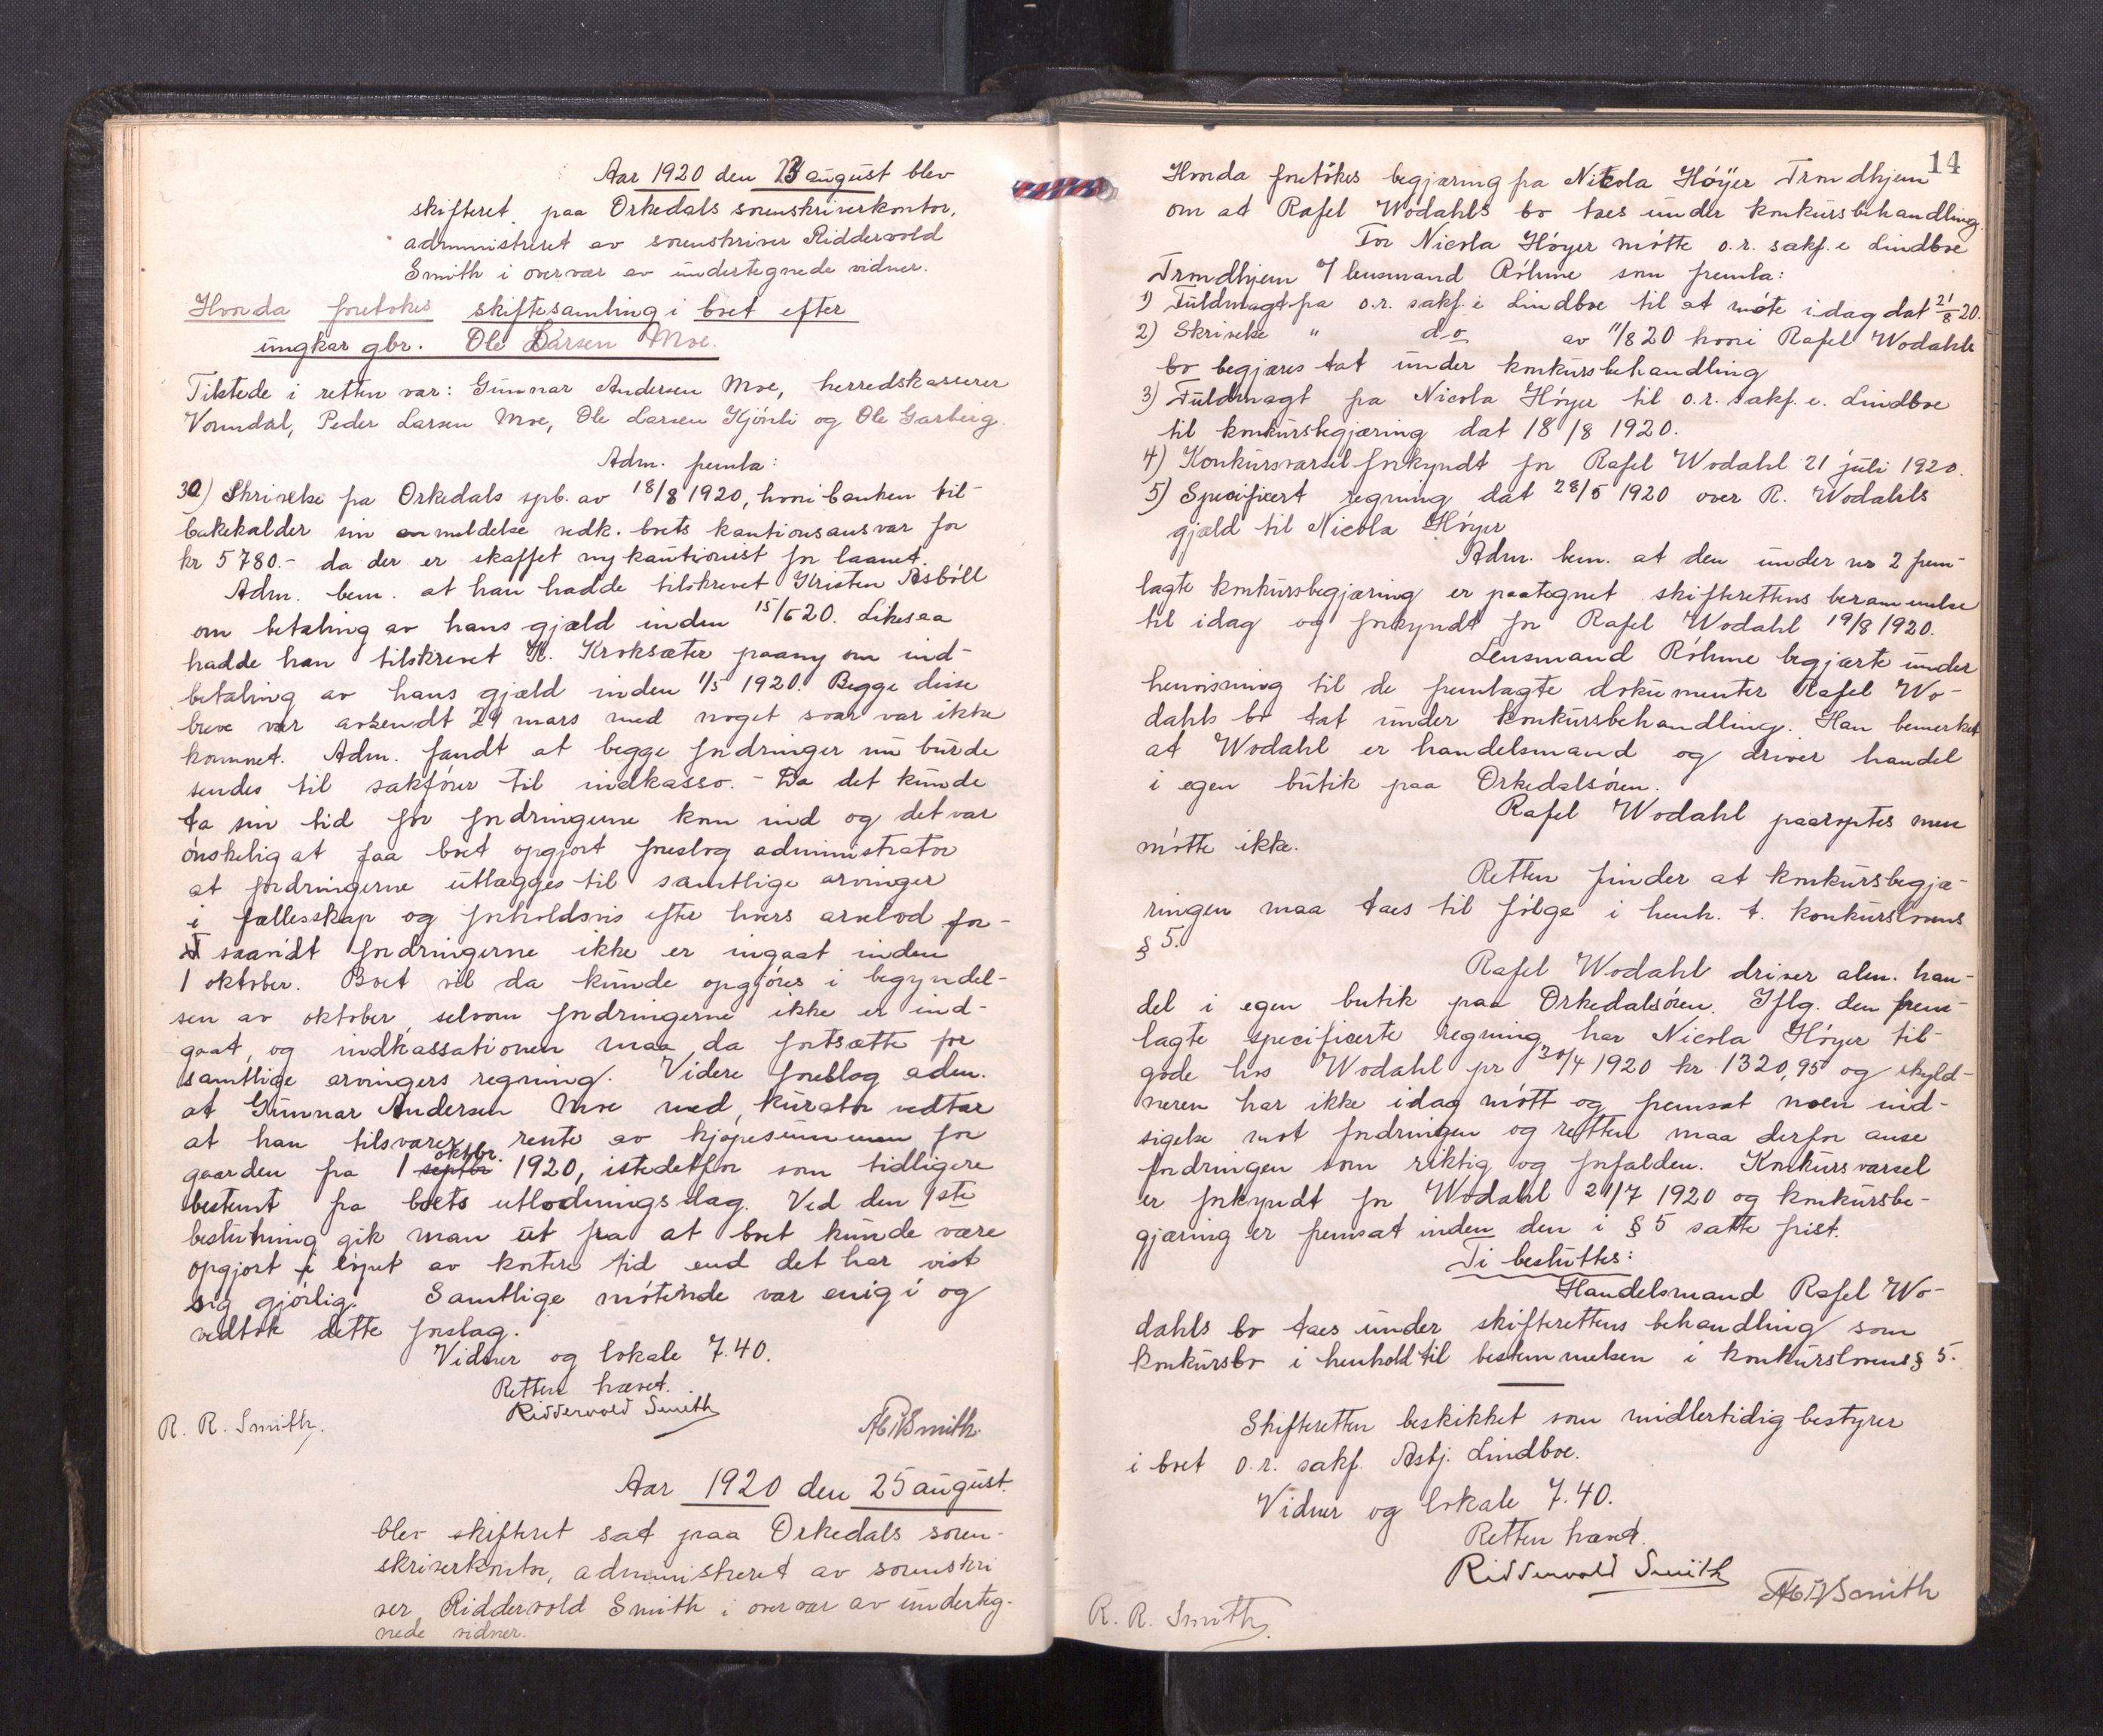 Aar 1920 den 23 august blev
skifteret paa Orkedals sorenskriverkontor,
administreret av sorenskriver Riddervold
Smith i overvær av undertegnede vidner.
Hvorda foretokes skiftesamling i boet efter
ungkar gbr. Ole Larsen Moe.
Tilstede i retten var: Gunnar Andersen Moe, herredskasserer
Vormdal, Peder Larsen Moe, Ole Larsen Kjönli og Ole Garberg.
Adm. fremla:
30) Skrivelse fra Orkedals spb. av 18/8 1920, hvori banken til-
bakekalder sin anmeldelse vedk. boets kautionsansvar for
kr 5780.- da der er skaffet ny kautionist for laanet.
Adm. bem. at han hadde tilskrevet Kristen Asböll
om betaling av hans gjæld inden 15/5 20. Likesaa
hadde han tilskrevet K. Kroksæter paany om ind-
betaling av hans gjæld inden 1/5 1920. Begge disse
breve var avsendt 29 mars med noget svar var ikke
kommet. Adm. fandt at begge fordringer nu burde
sendes til sakförer til indkasso. - Da det kunde
ta sin tid för fordringerne kom ind og det var
önskelig at faa boet opgjort foreslog administrator
at fordringerne utlægges til samtlige arvinger
i fællesskap og forholdsvis efter hvers arvelod for-
saavidt fordringerne ikke er ingaat inden
1 oktober. Boet vil da kunde opgjöres i begyndel-
sen av oktober, selvom fordringerne ikke er ind-
gaat, og indkassationen maa da fortsætte for
samtlige arvingers regning. Videre foreslog adm.
at Gunnar Andersen Moe med kurator vedtar
at han tilsvarer rente av kjöpesummen for
gaarden fra 1 septbr oktbr. 1920, istedetfor som tidligere
bestemt fra boets utlodningsdag. Ved den 1ste
beslutning gik man ut fra at boet kunde være
opgjort i löpet av kortere tid end det har vist
sig gjörlig. Samtlige mötende var enig i og
vedtok dette forslag.
Vidner og lokale 7.40.
Retten hævet.
Riddervold Smith
R. R. Smith.
Smith.
Aar 1920 den 25 august.
blev skifteret sat paa Orkedals soren-
skriverkontor, administreret av sorenskri
ver Riddervold Smith i overvær av underteg-
nede vidner.
14
Hvorda foretökes begjæring fra Nicola Höyer Trondhjem
om at Rafel Wodahls bo taes under konkursbehandling.
For Nicola Höyer mötte o.r. sakf. e Lindboe
Trondhjem v/ lensmand Röhme som fremla:
1) Fuldmagt fra o.r. sakf. e Lindboe til at möte idag dat 21/8 20.
2) Skrivelse " do av 11/8 20 hvori Rafel Wodahls
bo begjæres tat under konkursbehandling
3) Fuldmagt fra Nicola Höyer til o.r. sakf. e. Lindboe
til konkursbegjæring dat 18/8 1920.
4) Konkursvarsel forkyndt for Rafel Wodahl 21 juli 1920.
5) Specificert regning dat 28/5 1920 over R. Wodahls
gjæld til Nicola Höyer
Adm. bem. at den under nr 2 frem-
lagte konkursbegjæring er paategnet skifterettens berammelse
til idag og forkyndt for Rafel Wodahl 19/8 1920.
Lensmand Röhme begjærte under
henvisning til de fremlagte dokumenter Rafel Wo-
dahls bo tat under konkursbehandling. Han bemerket
at Wodahl er handelsmand og driver handel
i egen butik paa Orkedalsören.
Rafel Wodahl paaroptes men
mötte ikke.
Retten finder at konkursbegjæ-
ringen maa taes til fölge i henh. t. konkurslovens
§ 5.
Rafel Wodahl driver alm. han-
del i egen butik paa Orkedalsören. Iflg. den frem-
lagte specificerte regning har Nicola Höyer til-
gode hos Wodahl pr 30/4 1920 kr 1320,95 og skyld-
neren har ikke idag mött og fremsat noen ind-
sigelse mot fordringen og retten maa derfor anse
fordringen som riktig og forfalden. Konkursvarsel
er forkyndt for Wodahl 21/7 1920 og konkursbe-
gjæring er fremsat inden den i § 5 satte frist.
Ti besluttes:
Handelsmand Rafel Wo-
dahls bo taes under skifterettens behandling som
konkursbo i henhold til bestemmelsen i konkurslovens § 5.
Skifteretten beskikket som midlertidig bestyrer
i boet o.r. sakf. Asbj. Lindboe.
Vidner og lokale 7.40.
Retten hævet.
Riddervold Smith
Smith
R. R. Smith.